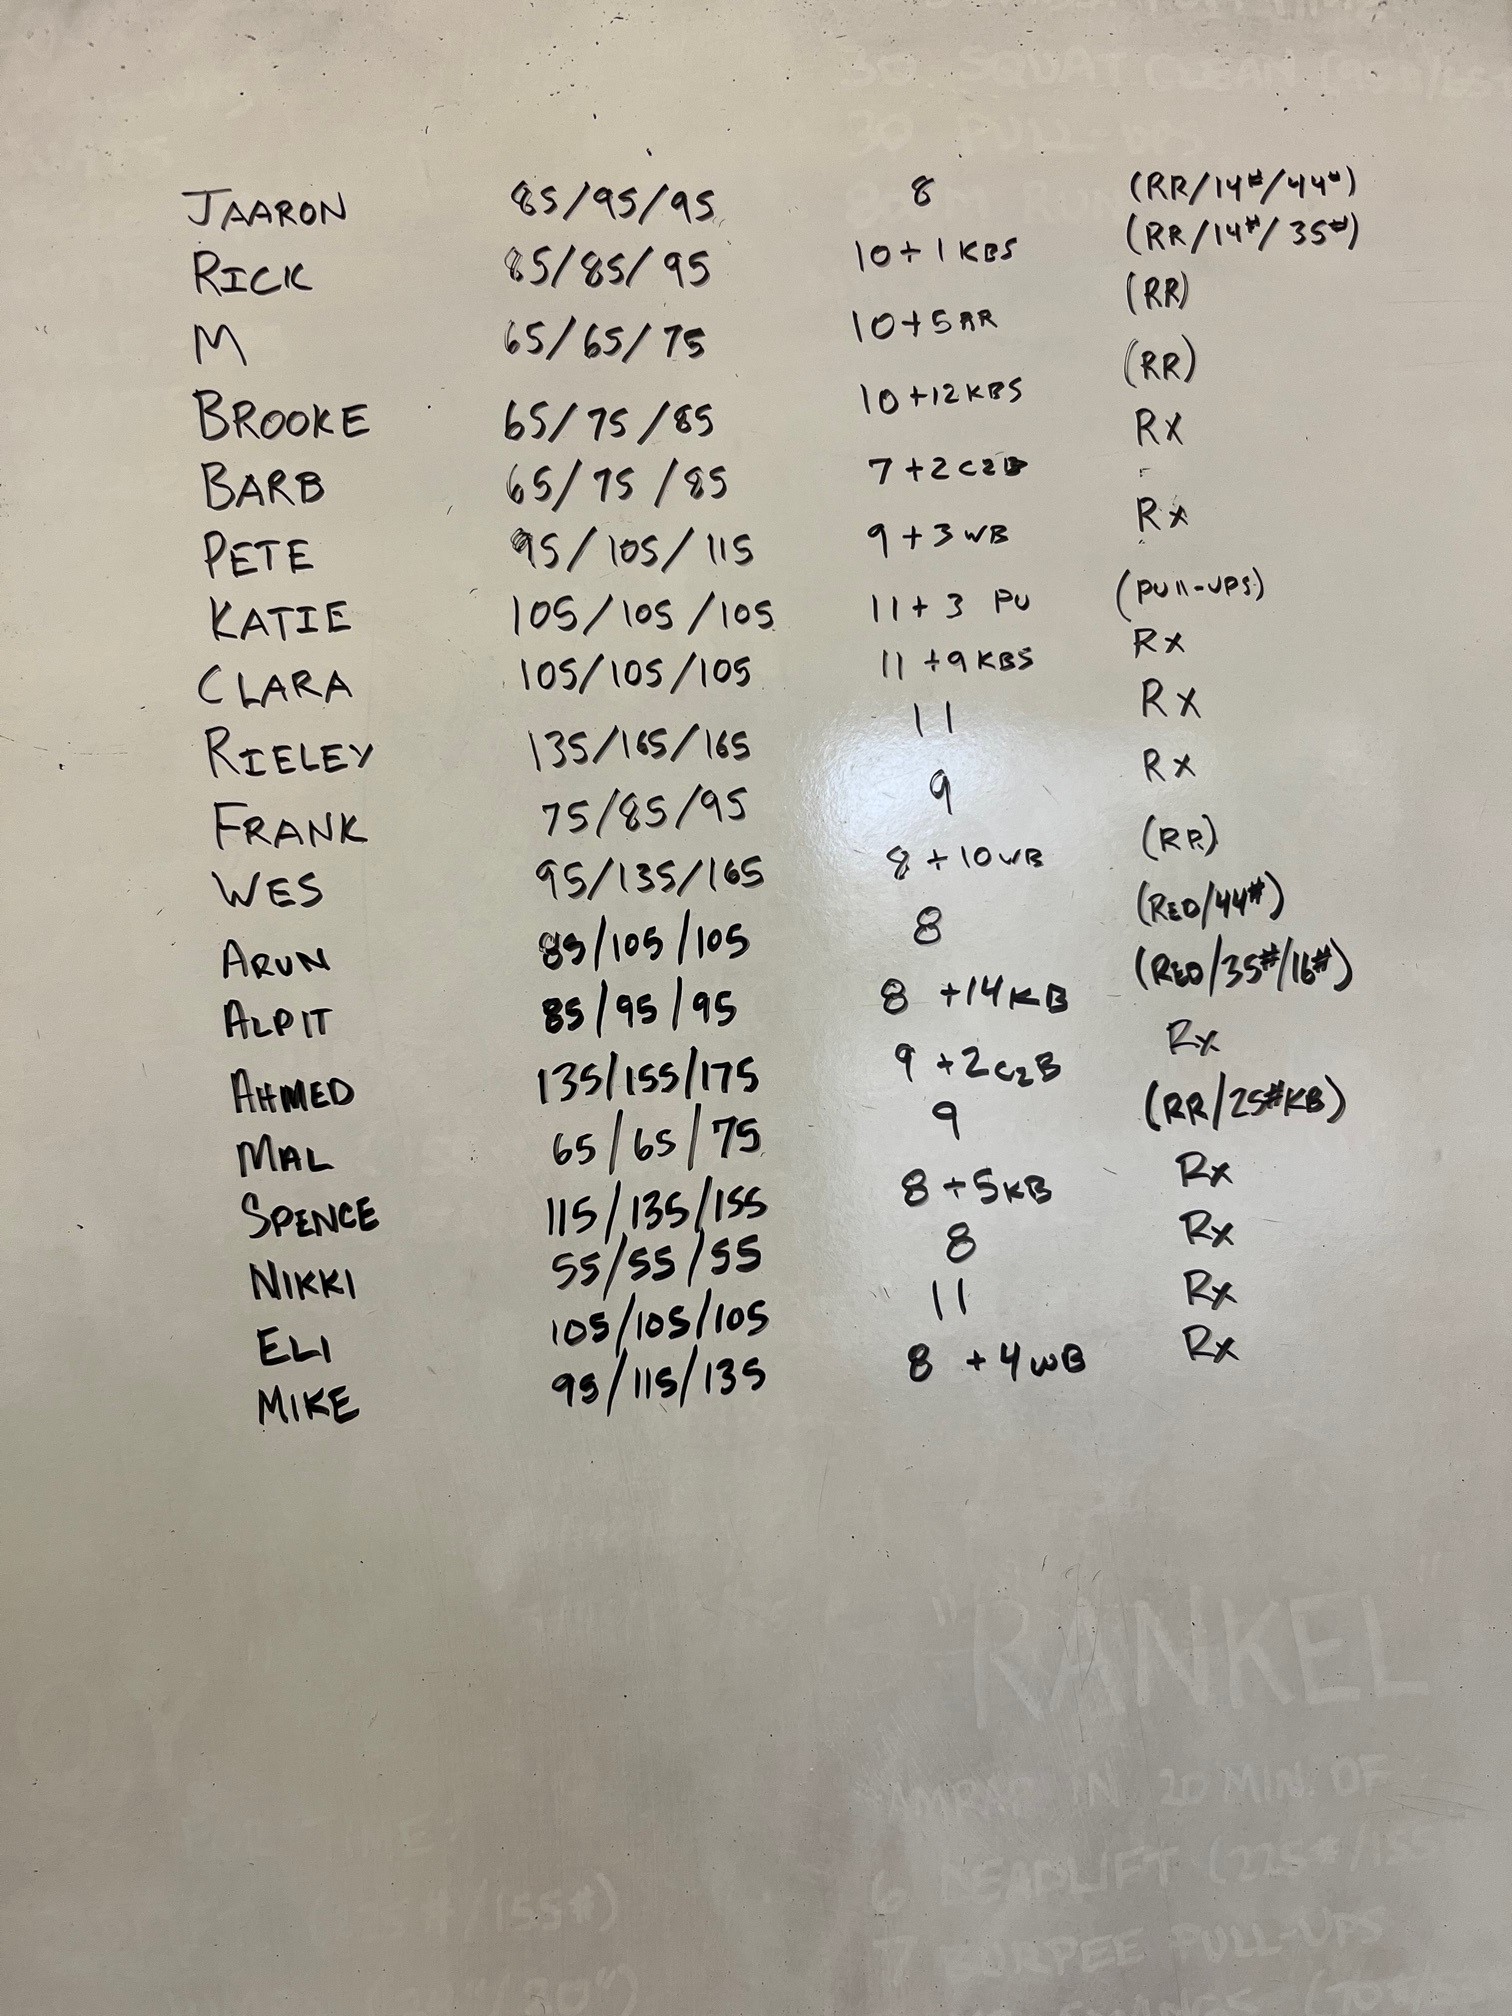 JAARON 85/95/95 8 (RR/14#/44#)
RICK 85/85/95 10+1 KBS (RR/14#/35#)
M 65/65/75 10+5 RR (RR)
BROOKE 65/75/85 10+12 KBS (RR)
BARB 65/75/85 7+2 C2B Rx
PETE 95/105/115 9+3 WB Rx
KATIE 105/105/105 11+3 PU (PUll-UPS)
CLARA 105/105/105 11+9 KBS Rx
RIELEY 135/165/165 11 Rx
FRANK 75/85/95 9 Rx
WES 95/135/165 8+10 WB (RR)
ARUN 85/105/105 8 (RED/44#)
ALPIT 85/95/95 8+14 KB (RED/35#/16#)
AHMED 135/155/175 9+2 C2B Rx
MAL 65/65/75 9 (RR/25#KB)
SPENCE 115/135/155 8+5 KB Rx
NIKKI 55/55/55 8 Rx
ELI 105/105/105 11 Rx
MIKE 95/115/135 8+4 WB Rx
"RANKEL"
AMRAP IN 20 MIN. OF
6 DEADLIFT (225#/155
7 BURPEE PULL-UPS